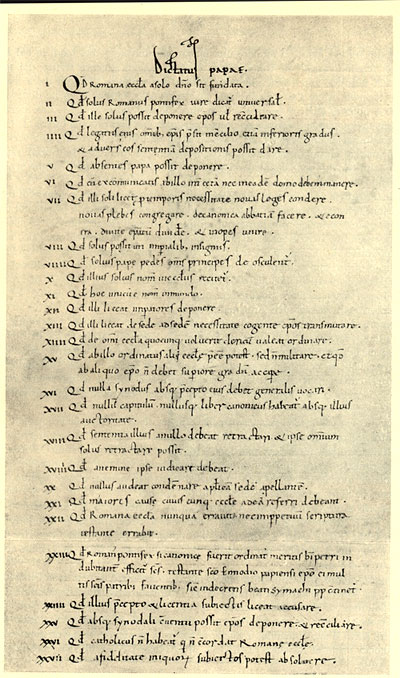 Dictatus papae.
I Qd Romana eccla a solo dno sit fundata.
II Qd solus Romanus pontifex iure dicat universal.
III Qd ille solus possit deponere epos ul reconciliare.
IIII Qd legatus eius omib; epis psit in concilio etiā inferioris gradus.
& adversus eos sententiā depositionis possit dare.
V Qd absentes papa possit deponere.
VI Qd cū excomunicatis ab illo int cetā nec in eadē domo debem manere.
VII Qd illi soli licet p temporis necessitate novas leges condere.
novas plebes congregare. de canonica abbatiam facere. & e con
tra. divite epatū divide. & inopes unire.
VIII Qd solus possit uti impialib; insigniis.
VIIII Qd solius pape pedes oms principes deosculent.
X Qd illius solius nom in ecclis recitet.
XI Qd hoc unicū e nom in mundo.
XII Qd illi liceat impatores deponere.
XIII Qd illi liceat de sede ad sedē necessitate cogente epos transmutare.
XIIII Qd de omi eccla quocūq; voluerit clericū valeat ordinare.
XV Qd ab illo ordinatus alii eccle pee potest. sed n militare. et qd
ab aliquo epo n debet supiore gradū accipe.
XVI Qd nulla synodus absq; pcepto eius debet generalis vocari.
XVII Qd nullū capitulū nullusq; liber canonicus habeat absq; illius
auctoritate.
XVIII Qd sententia illius a nullo debeat retractari & ipse omium
solus retractare possit.
XVIIII Qd a nemine ipse iudicare debeat.
XX Qd nullus audeat condēnare aplicā sedē apellante.
XXI Qd maiores cause cuiuscunq; eccle ad eā referri debeant.
XXII Qd Romana eccla nunquā erravit nec imppetuū scriptura
testante errabit.
XXIII Qd Roman pontifex si canonice fuerit ordinat meritis b petri in
dubitant effici scs. testante sco Ennodio papiensi epo ei mul
tis scis patrib; faventib; sic in decretis beati symachi pp continet.
XXIIII Qd illius pcepto & licentia subiectis liceat accusare.
XXV Qd absq; synodali cventu possit epos deponere & recciliare.
XXVI Qd catholicus n habeat q n ccordat Romane eccle.
XXVII Qd a fidelitate iniquor subiectos potest absolvere.